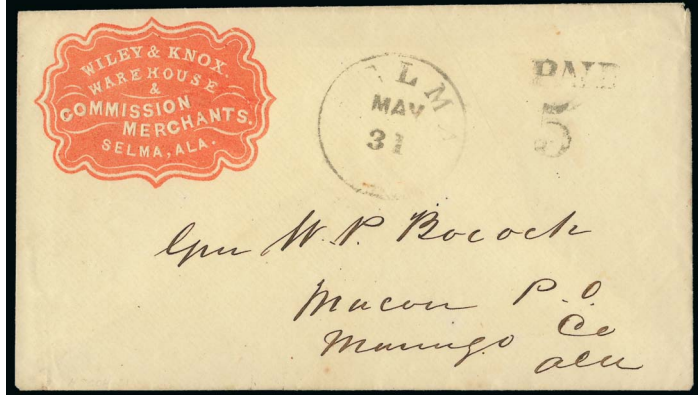 WILEY & KNOX.
WAREHOUSE
&
COMMISSION
MERCHANTS.
SELMA, ALA.
SELMA
MAY
31
PAID
5
Gen W. P. Bocock
Macon P. O.
Marengo Co
Ala